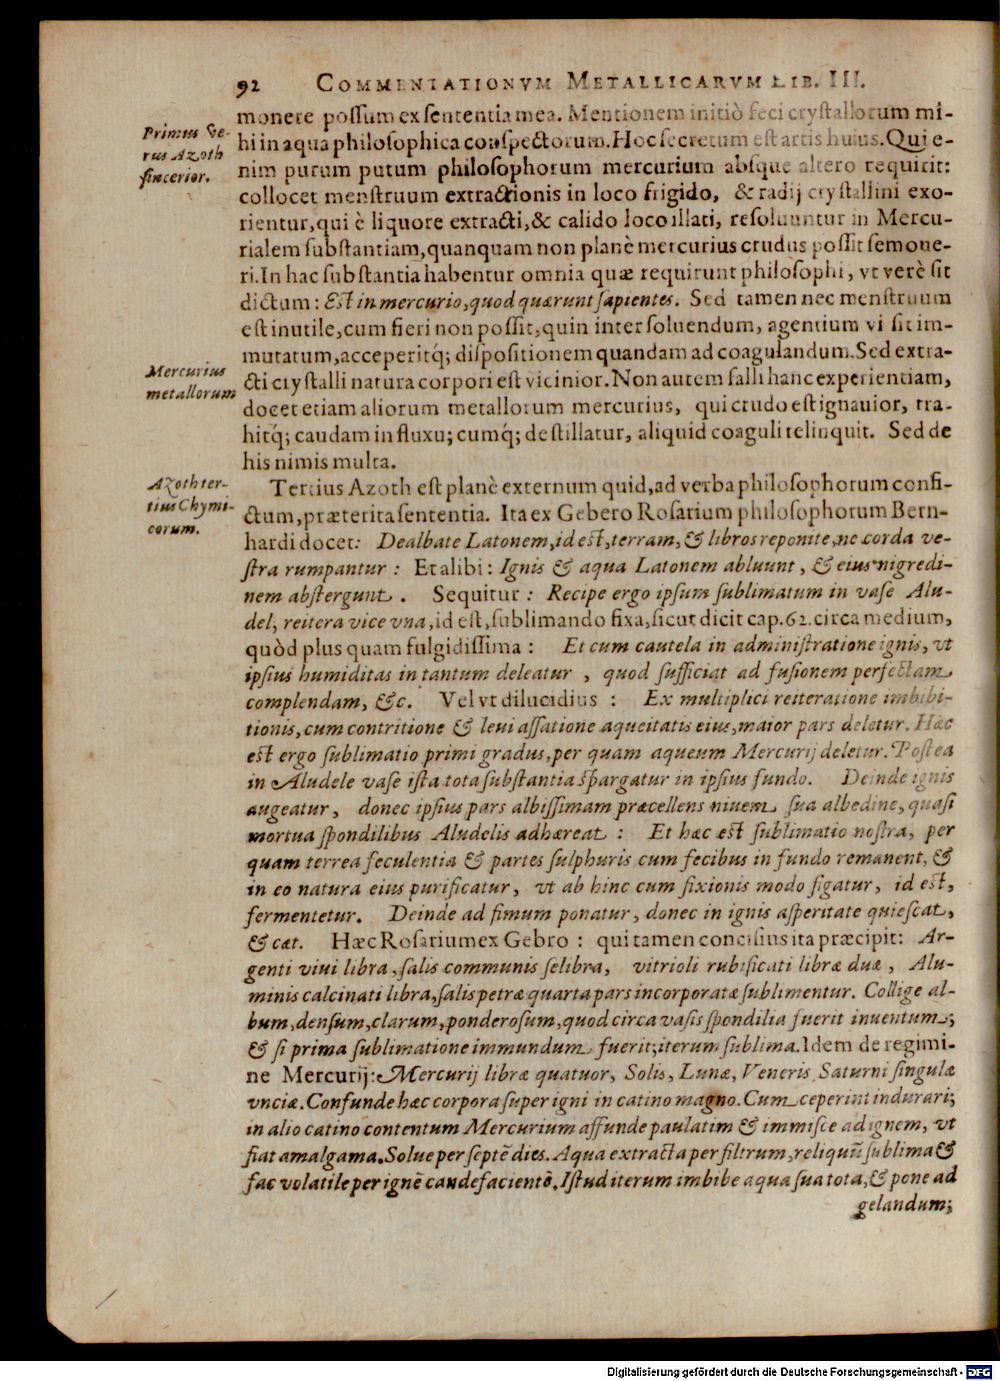 92 COMMENTATIONVM METALLICARVM LIB. III.
monere possum ex sententia mea. Mentionem initiò feci crystallorum mi-
Primus Ve-
rus Azoth
sincerior.
hi in aqua philosophica conspectorum. Hoc secretum est artis huius. Qui e-
nim purum putum philosophorum mercurium absque altero requirit:
collocet menstruum extractionis in loco frigido, & radij crystallini exo-
rientur, qui è liquore extracti, & calido loco illati, resoluuntur in Mercu-
rialem substantiam, quanquam non planè mercurius crudus possit semoue-
ri. In hac substantia habentur omnia quæ requirunt philosophi, vt verè sit
dictum: Est in mercurio, quod quærunt sapientes. Sed tamen nec menstruum
est inutile, cum fieri non possit, quin inter soluendum, agentium vi sit im-
mutatum, acceperitq́; dispositionem quandam ad coagulandum. Sed extra-
Mercurius
metallorum
cti crystalli natura corpori est vicinior. Non autem falli hanc experientiam,
docet etiam aliorum metallorum mercurius, qui crudo est ignauior, tra-
hitq́; caudam in fluxu; cumq́; destillatur, aliquid coaguli relinquit. Sed de
his nimis multa.
Azoth ter-
tius Chymi-
corum.
Tertius Azoth est planè externum quid, ad verba philosophorum confi-
ctum, præterita sententia. Ita ex Gebero Rosarium philosophorum Bern-
hardi docet: Dealbate Latonem, id est, terram, & libros reponite, ne corda ve-
stra rumpantur: Et alibi: Ignis & aqua Latonem abluunt, & eius nigredi-
nem abstergunt. Sequitur: Recipe ergo ipsum sublimatum in vase Alu-
del, reitera vice vna, id est, sublimando fixa, sicut dicit cap. 62. circa medium,
quòd plus quam fulgidissima: Et cum cautela in administratione ignis, vt
ipsius humiditas in tantum deleatur, quod sufficiat ad fusionem perfectam
complendam, &c. Vel vt dilucidius: Ex multiplici reiteratione imbibi-
tionis, cum contritione & leui assatione aqueitatis eius, maior pars deletur. Hæc
est ergo sublimatio primi gradus, per quam aqueum Mercurij deletur. Postea
in Aludele vase ista tota substantia spargatur in ipsius fundo. Deinde ignis
augeatur, donec ipsius pars albissimam præcellens niuem sua albedine, quasi
mortua spondilibus Aludelis adhæreat: Et hæc est sublimatio nostra, per
quam terrea feculentia & partes sulphuris cum fecibus in fundo remanent, &
in eo natura eius purificatur, vt ab hinc cum fixionis modo figatur, id est,
fermentetur. Deinde ad fimum ponatur, donec in ignis asperitate quiescat,
& cæt. Hæc Rosarium ex Gebro: qui tamen concisius ita præcipit: Ar-
genti viui libra, salis communis selibra, vitrioli rubificati libræ duæ, Alu-
minis calcinati libra, salis petræ quarta pars incorporatæ sublimentur. Collige al-
bum, densum, clarum, ponderosum, quod circa vasis spondilia fuerit inuentum;
& si prima sublimatione immundum fuerit, iterum sublima. Idem de regimi-
ne Mercurij: Mercurij libræ quatuor, Solis, Lunæ, Veneris, Saturni singulæ
vnciæ. Confunde hæc corpora super igni in catino magno. Cum ceperint indurari;
in alio catino contentum Mercurium affunde paulatim & immisce ad ignem, vt
fiat amalgama. Solue per septē dies. Aqua extracta per filtrum, reliquū sublima &
fac volatile per ignē candefacientē. Istud iterum imbibe aqua sua tota, & pone ad
gelandum;
Digitalisierung gefördert durch die Deutsche Forschungsgemeinschaft - DFG